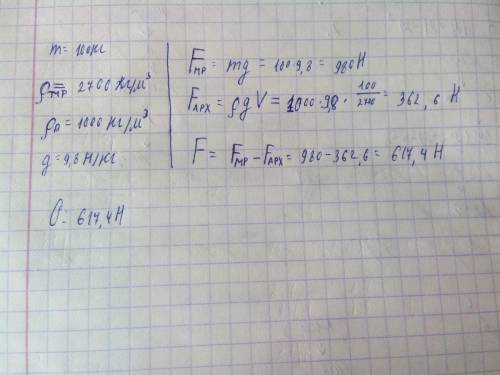 m = 100кг
ρмр = 2700 кг/м³
ρв = 1000 кг/м³
g = 9,8 Н/кг
О: 617,4 Н
Fмр = mg = 100·9,8 = 980 Н
Fарх = ρgV = 1000·98·100/2700 = 362,6 Н
F = Fмр - Fарх = 980 - 362,6 = 617,4 Н